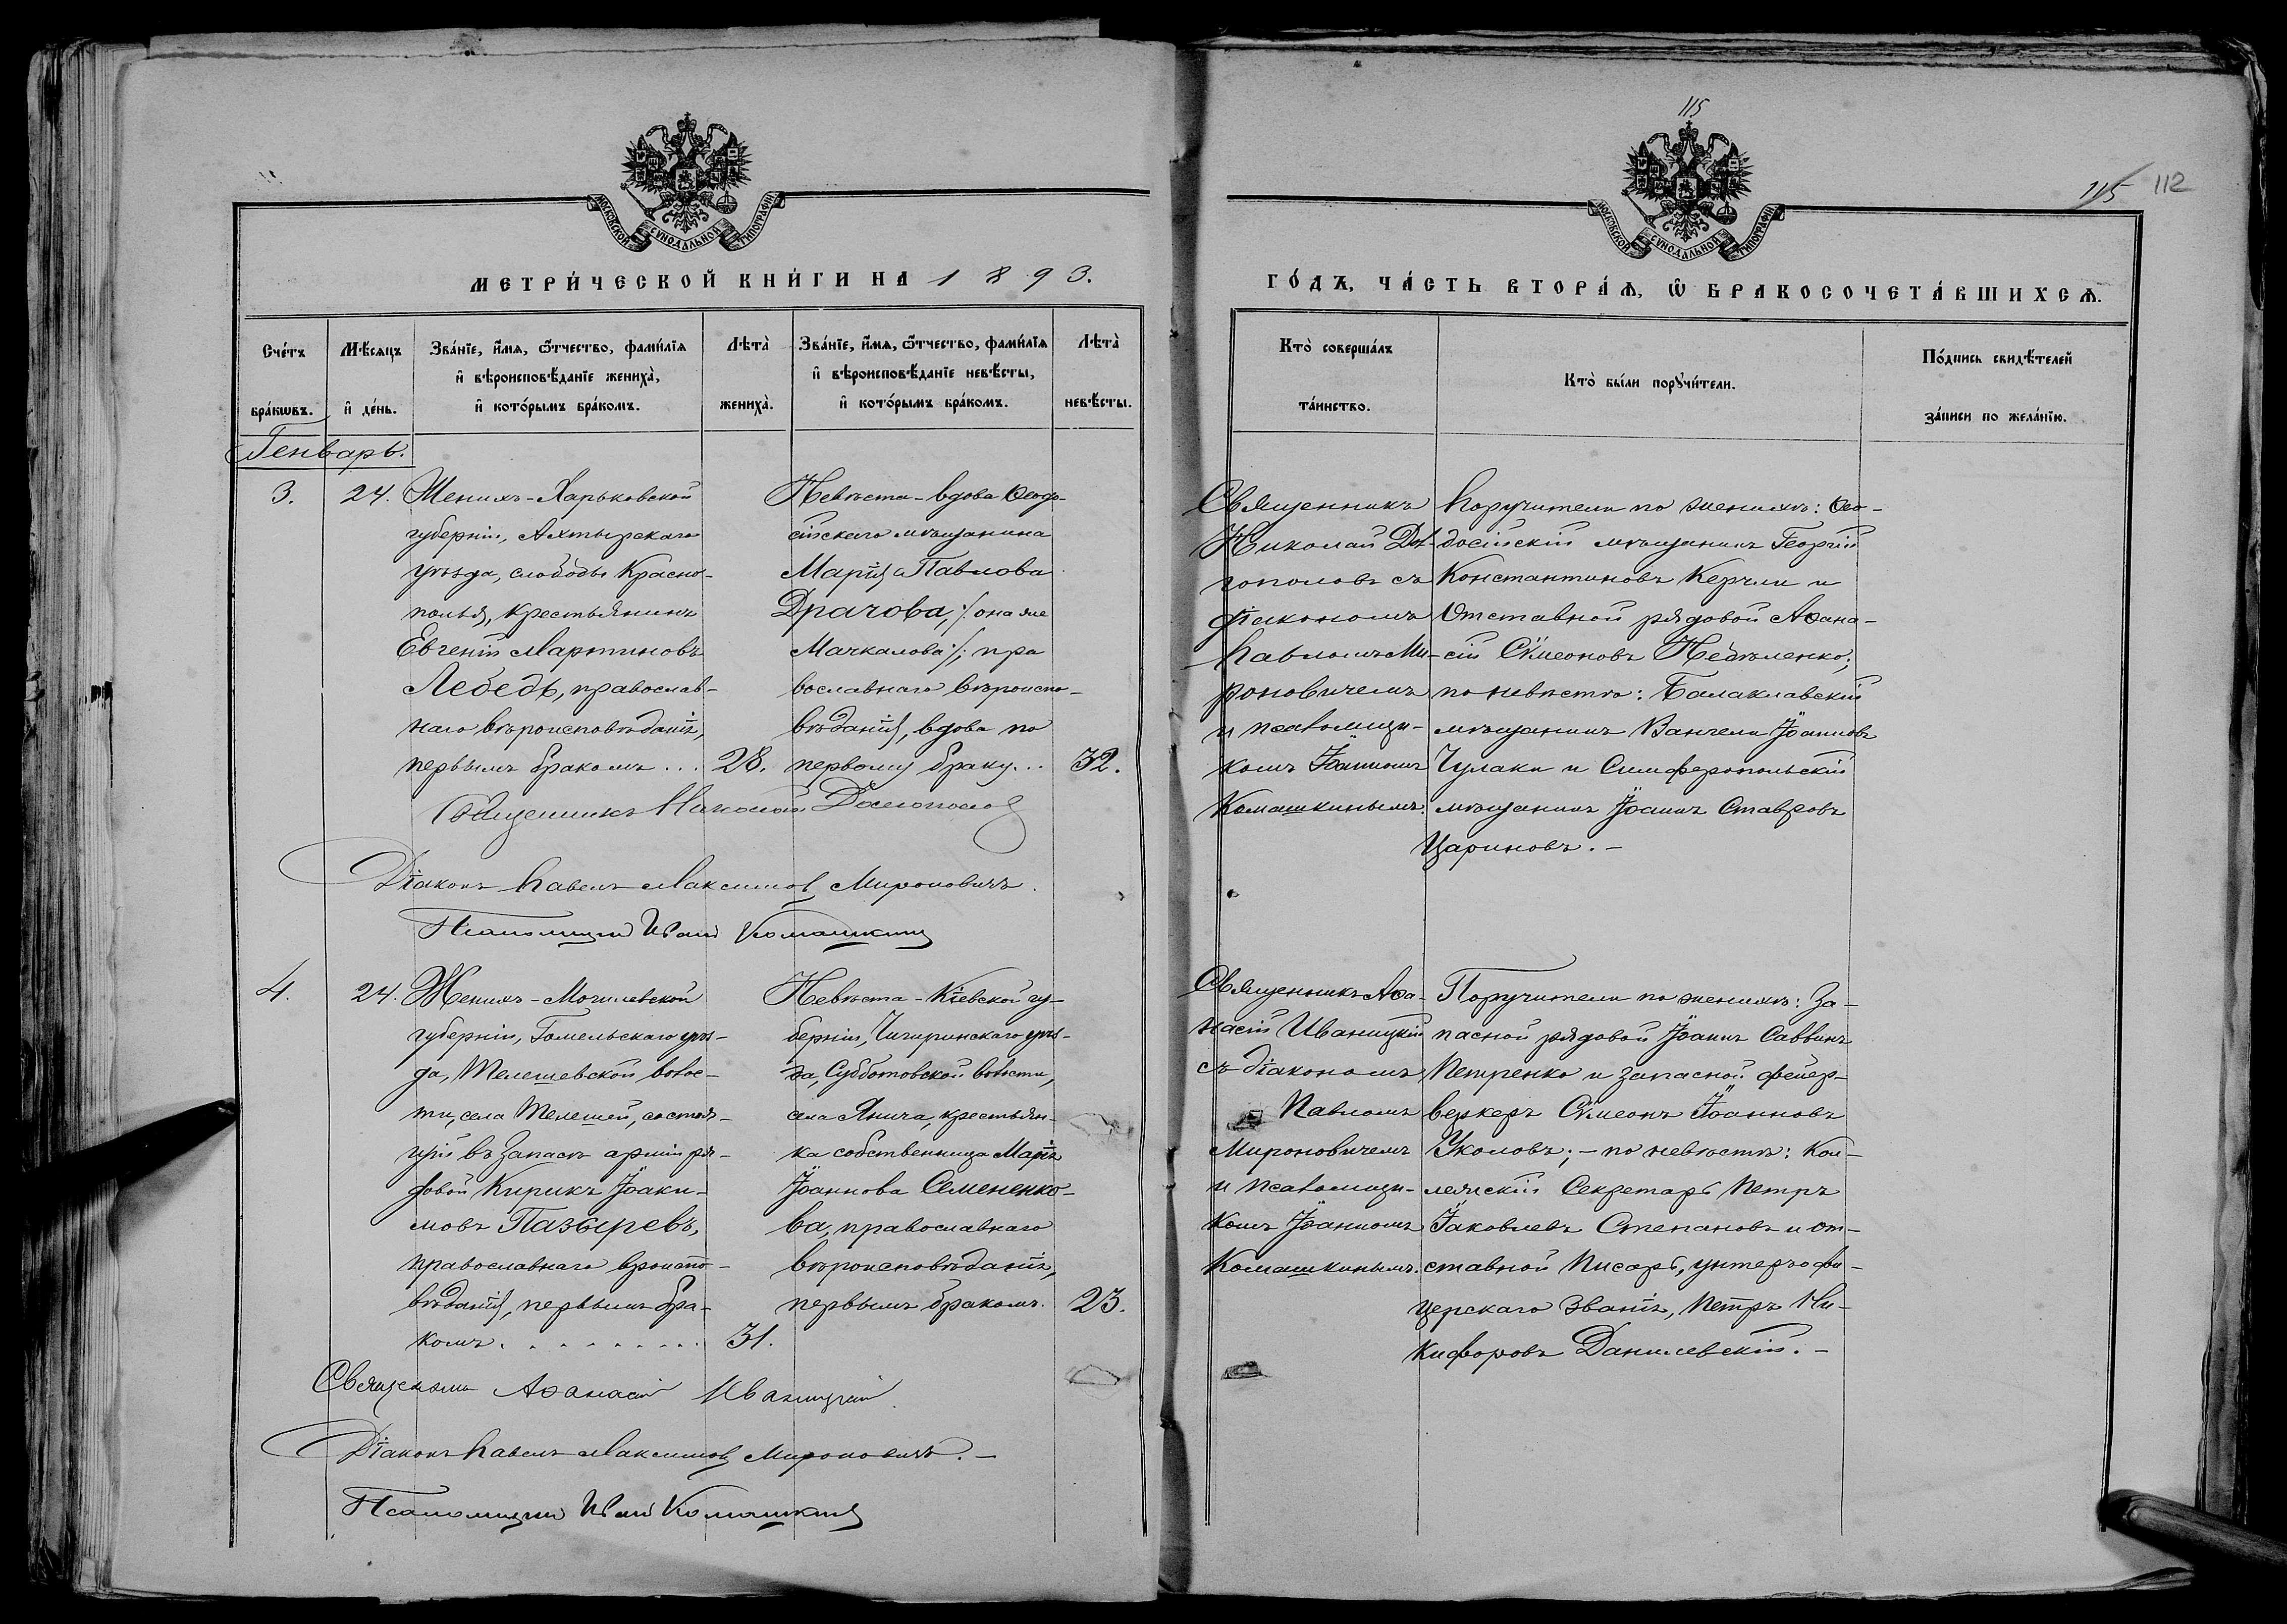 115
115 112
МОСКОВСКОЙ СѴНОДАЛЬНОЙ ТИПОГРАФІИ
МЕТРИ́ЧЕСКОЙ КНИ́ГИ НА 1893.
Сче́тъ бра́кωвъ.
Мѣ́сяцъ и҆ де́нь.
Зва́нїе, и҆́мѧ, ѻ҆́тчество, фамѝлїѧ
и҆ вѣроисповѣ́данїе жениха̀,
и҆ кото́рымъ бра́комъ.
Лѣта̀ жениха̀.
Зва́нїе, и҆́мѧ, ѻ҆́тчество, фамѝлїѧ
и҆ вѣроисповѣ́данїе невѣ́сты,
и҆ кото́рымъ бра́комъ.
Лѣта̀ невѣ́сты.
Генварь.
3.
24.
Женихъ - Харьковской
губерніи, Ахтырскаго
уѣзда, слободы Красно-
полья, крестьянинъ
Евгеній Мартиновъ
Лебедь, православ-
наго вѣроисповѣданія,
первымъ бракомъ ... 28.
Невѣста - вдова Ѳеодо-
сійскаго мѣщанина
Марія Павлова
Драчова, /: она же
Мачкалова :/, пра
вославнаго вѣроиспо-
вѣданія, вдова по
первому браку... 32.
Священникъ Николай Долгополов
Діаконъ Павелъ Максимов Мироновичъ.
Псаломщик Иван Комашкин
4.
24.
Женихъ - Могилевской
губерніи, Гомельскаго уѣз-
да, Телешевской волос-
ти, села Телешей, состоя-
щій въ запасѣ арміи ря-
довой Кирикъ Іоаки-
мовъ Пазыревъ,
православнаго вроиспо-
вѣданія, первымъ бра-
комъ. . . . . . . . . 31.
Невѣста - Кіевской гу-
берніи, Чигиринскаго уѣз-
да, Субботовской волости,
села Янича, крестьян-
ка собственница Марія
Іоаннова Семененко-
ва, православнаго
вѣроисповѣданія,
первымъ бракомъ. 23.
Священникъ Аѳанасій Иваницкій
Діаконъ Павелъ Максимов Мироновичъ. -
Псаломщик Иван Комашкин
МОСКОВСКОЙ СѴНОДАЛЬНОЙ ТИПОГРАФІИ
ГО́ДЪ, ЧА́СТЬ ВТОРА́Ѧ, Ѡ҆ БРАКОСОЧЕТА́ВШИХСѦ.
Кто̀ соверша́лъ
та́инство.
Кто̀ бы́ли порꙋчи́тели.
По́дпись свидѣ́телей
за́писи по жела́нїю.
Священникъ
Николай Дол-
гополовъ съ
діакономъ
Павломъ Ми-
роновичемъ
и псаломщи-
комъ Іоанномъ
Комашкинымъ.
Поручители по женихѣ: Ѳео-
досійскій мѣщанинъ Георгій
Константиновъ Керчли и
Отставной рядовой Аѳана-
сій Сѵмеоновъ Небѣленко;
по невѣстѣ: Балаклавскій
мѣщанинъ Вангели Іоанновъ
Чулаки и Симферопольскій
мѣщанинъ Іоаннъ Ставровъ
Цариновъ. -
Священникъ Аѳа-
насій Иваницкій
съ діакономъ
Павломъ
Мироновичемъ
и псаломщи-
комъ Іоанномъ
Комашкинымъ.
Поручители по женихѣ: За-
пасной рядовой Іоаннъ Саввинъ
Петренко и запасной фейер-
веркеръ Сѵмеонъ Іоанновъ
Уколовъ; - по невѣстѣ: Кол-
лежскій Секретарь Петръ
Іаковлевъ Степановъ и от-
ставной писарь, унтеръ офи-
церскаго званія, Петръ Ни-
кифоровъ Данилевскій. -